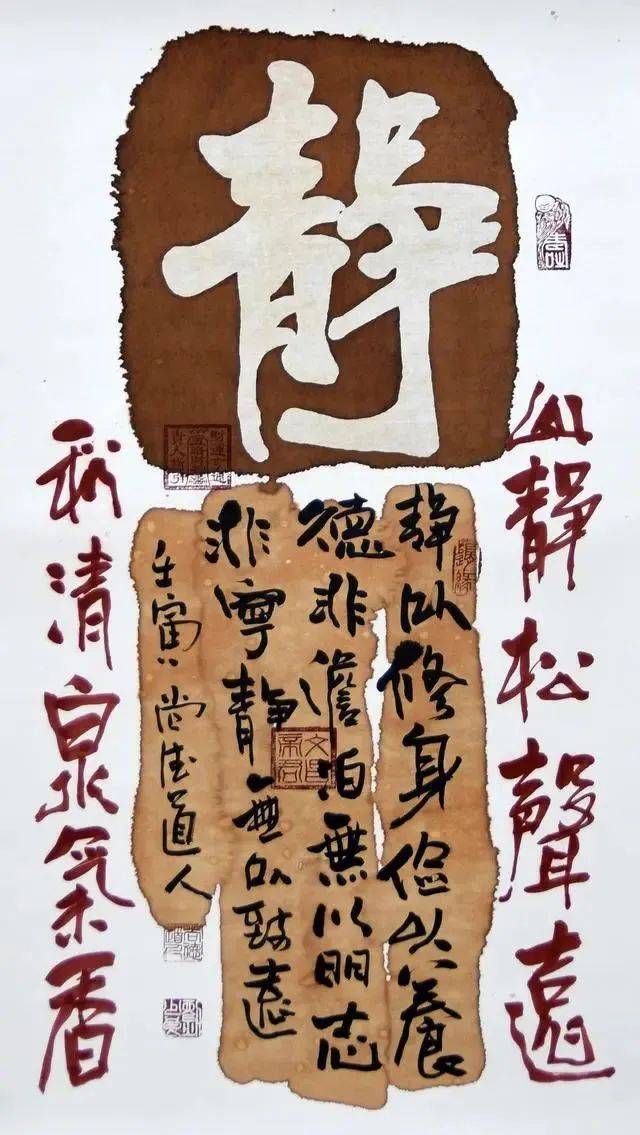 靜
山靜松聲遠
靜以修身儉以養
德非澹泊無以明志
非寧靜無以致遠
壬寅尚德道人
秋清泉氣香
文昌帝君